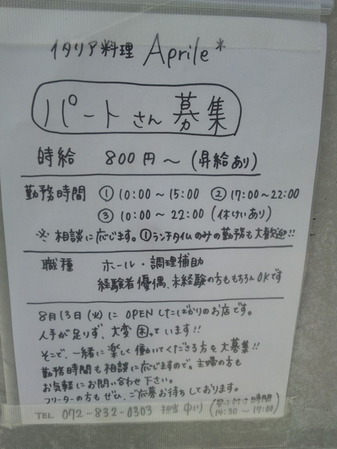 イタリア料理 Aprile*
パートさん募集
時給 800円〜 (昇給あり)
勤務時間 ①10:00〜15:00 ②17:00〜22:00
③10:00〜22:00 (休けいあり)
※相談に応じます。①ランチタイムのみの勤務も大歓迎!!
職種 ホール・調理補助
経験者優偶、未経験の方ももちろんOKです
8月13日(火)に OPENしたばかりのお店です。
人手が足りず、大変困っています!!
そこで、一緒に楽しく働いてくださる方を大募集!!
勤務時間も相談に応じますので、主婦の方も
お気軽にお問い合わせ下さい。
フリーターの方もぜひ、ご応募お待ちしております。
TEL 072-832-0303 担当 中川 (受け付け時間
14:30 〜 17:00)